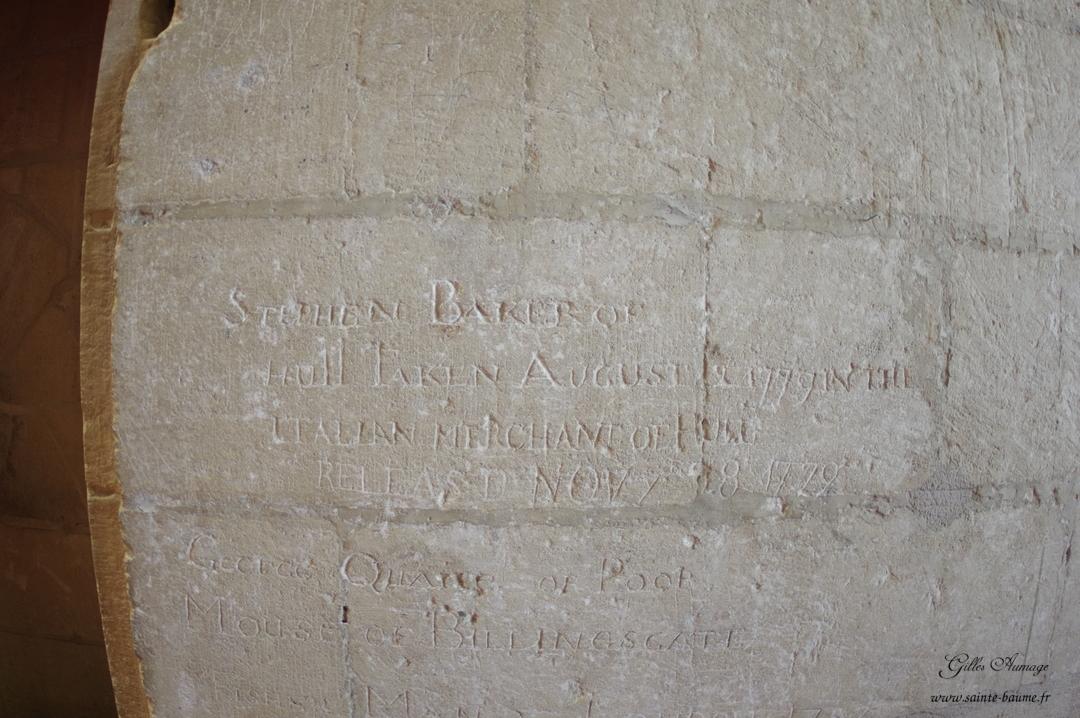 STEPHEN BAKER OF
HUll TAKEN AUGUST 1779 IN THE
ITALIAN MERCHANT OF HULL
RELEASD NOVr 8 1779
GEORGE OF POOR
MOUSE OF BILLINGSGATE
Gilles Aumage
www.sainte-baume.fr